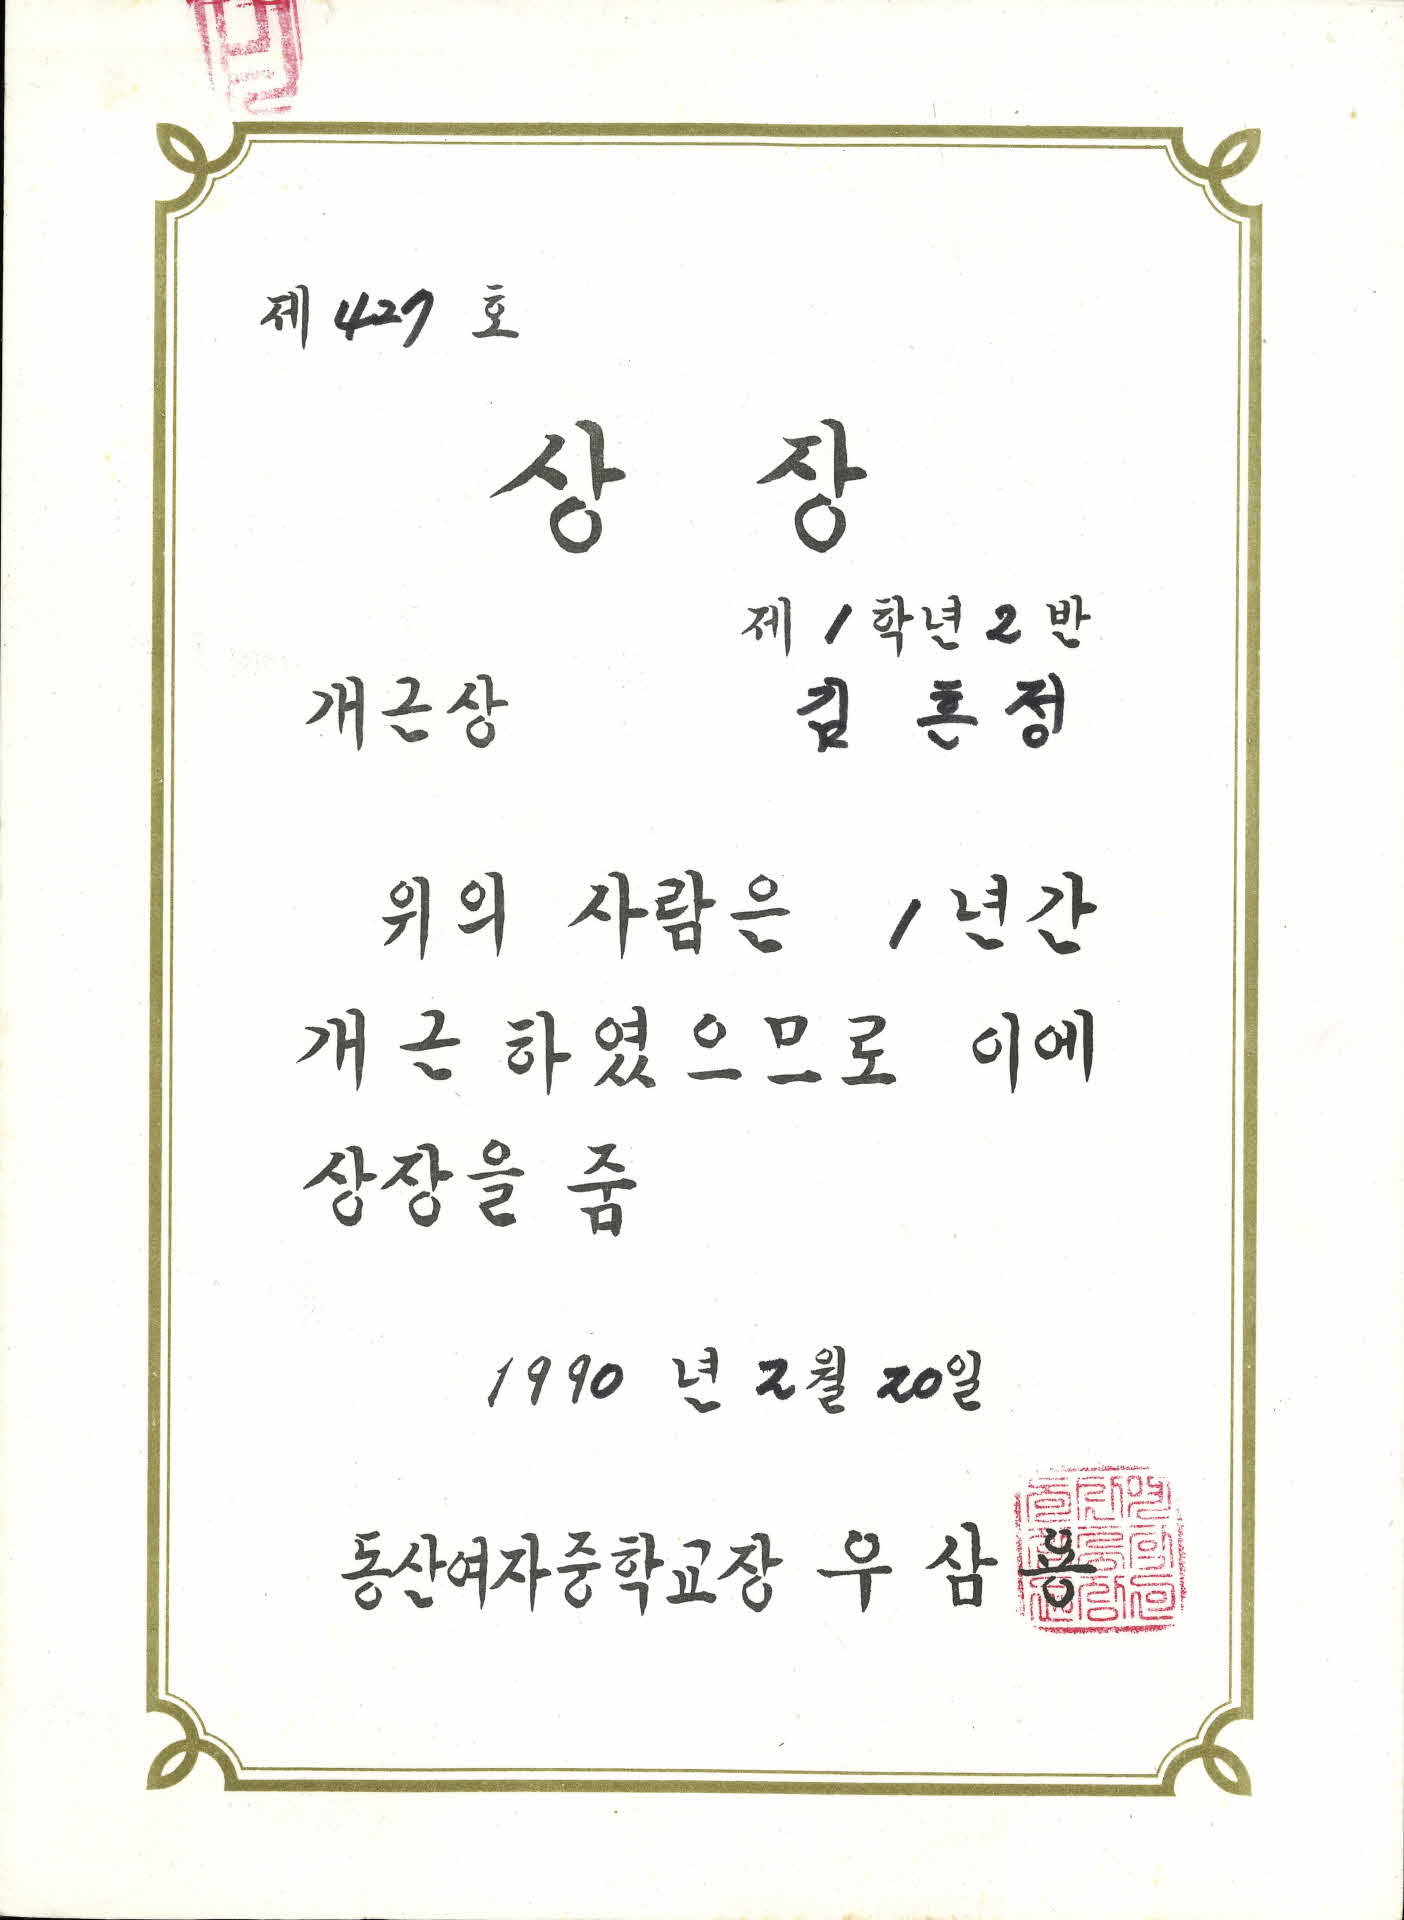 제 427 호
상 장
제 1 학년 2 반
개근상 김 흔 정
위의 사람은 1 년간
개근 하였으므로 이에
상장을 줌
1990 년 2월 20일
동산여자중학교장 우 삼 용